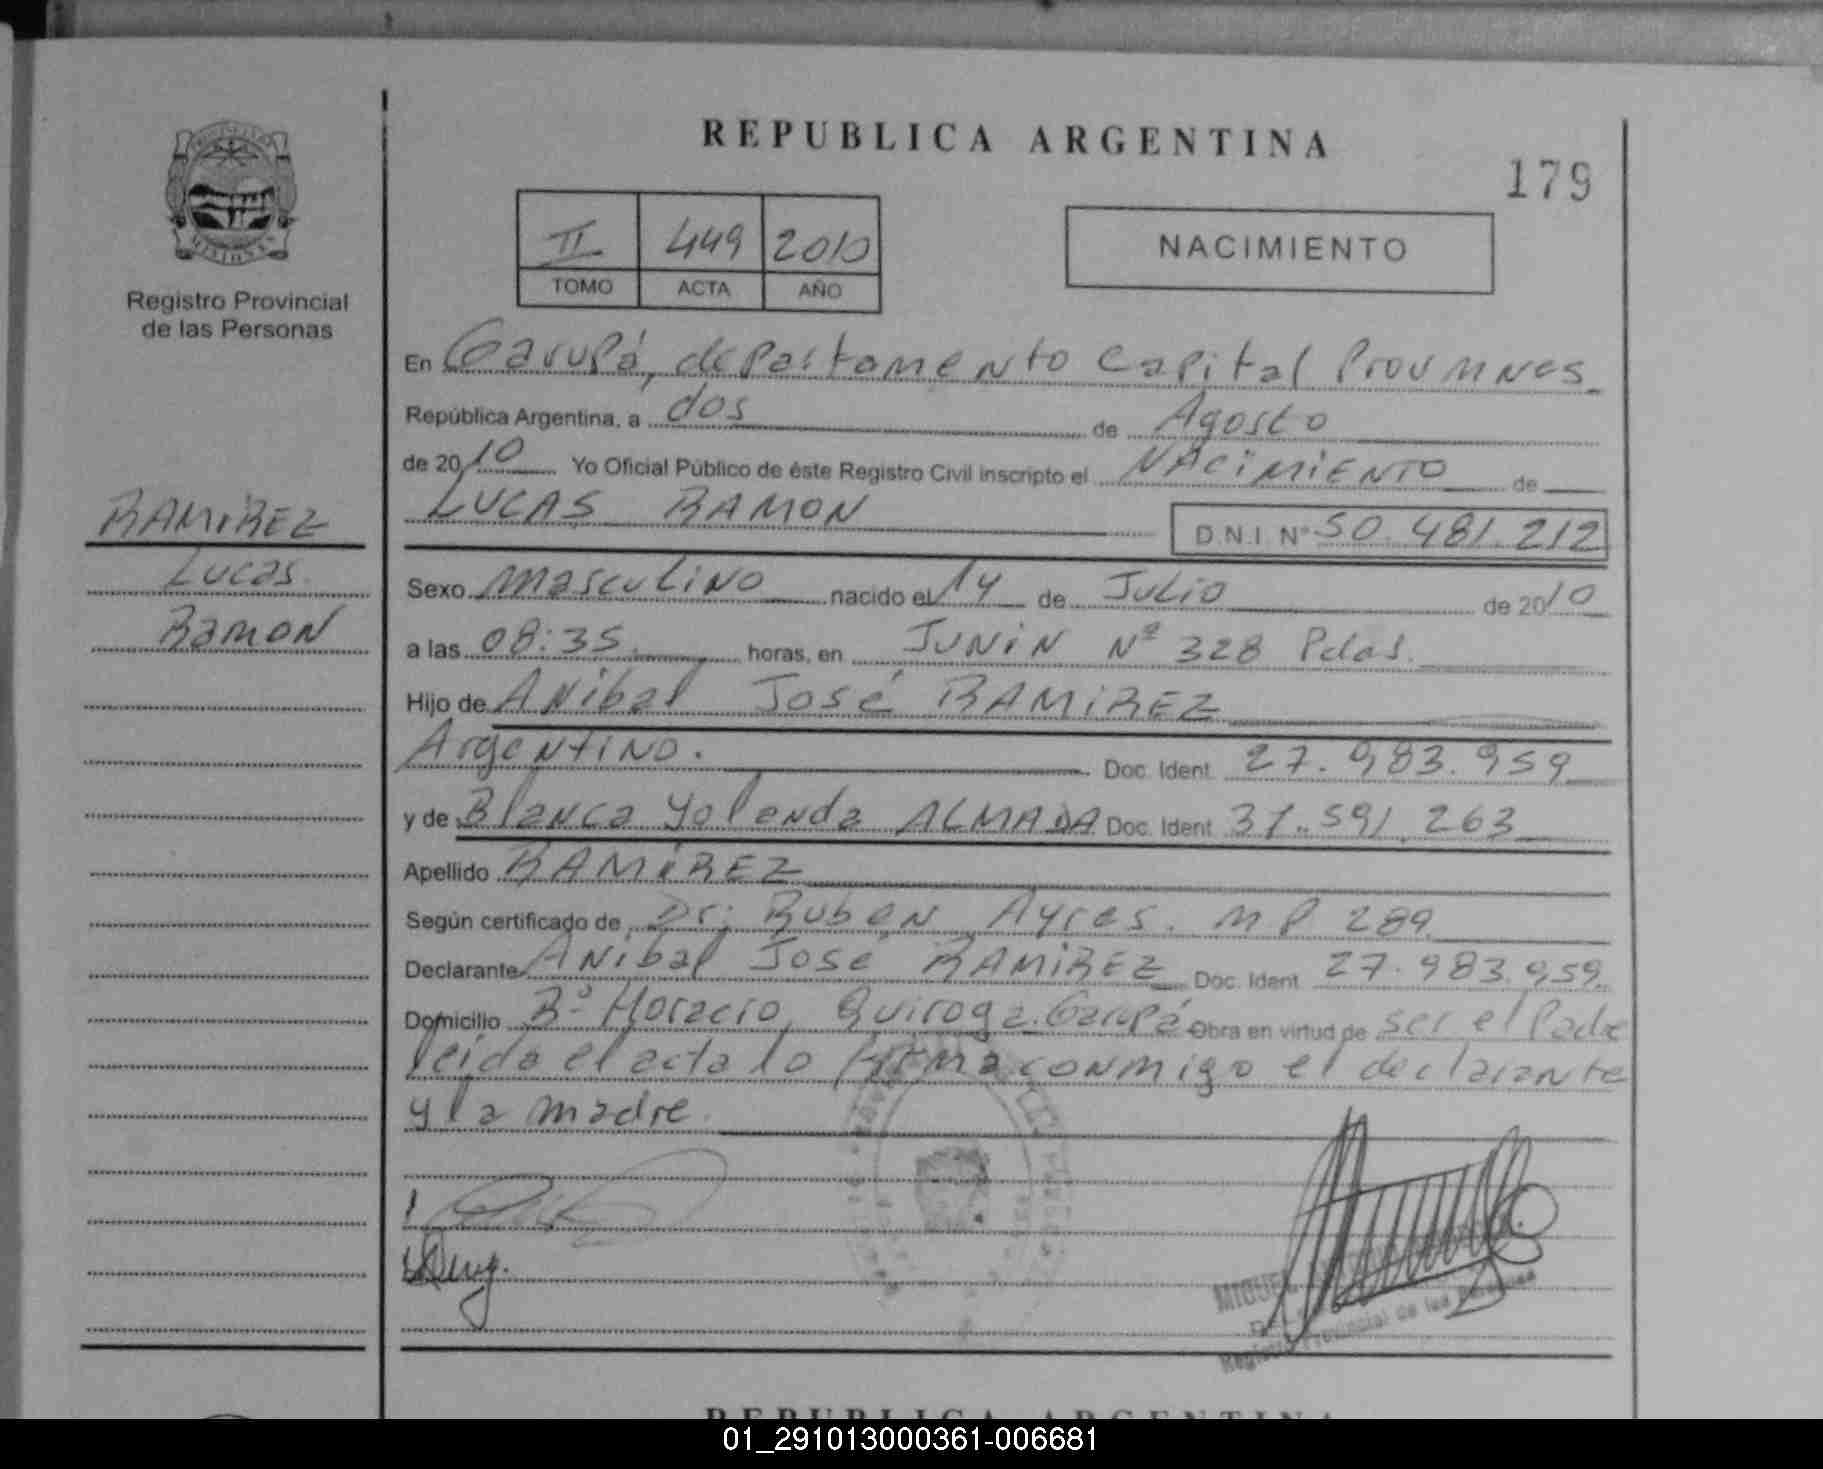 REPUBLICA ARGENTINA
179
II 449 2010
TOMO ACTA AÑO
NACIMIENTO
MISIONES
Registro Provincial
de las Personas
RAMIREZ
Lucas
Ramon
En Garupá, departamento Capital Prov Mnes
República Argentina, a dos de Agosto
de 2010 Yo Oficial Público de éste Registro Civil inscripto el NACIMIENTO de
LUCAS RAMON D.N.I. Nº 50.481.212
Sexo masculino nacido el 14 de Julio de 2010
a las 08:35 horas, en JUNIN Nº 328 Pdas.
Hijo de Anibal José RAMIREZ
Argentino. Doc. Ident. 27.983.959
y de Blanca Yolanda ALMADA Doc. Ident. 31.591.263
Apellido RAMIREZ
Según certificado de Dr: Ruben Ayres. M P 289
Declarante Anibal José RAMIREZ Doc. Ident. 27.983.959
Domicilio Bº Horacio Quiroga. Garupá Obra en virtud de ser el Padre
leida el acta lo firma conmigo el declarante
y la madre
MIGUEL
Registro Provincial de las Personas
REPUBLICA ARGENTINA
01_291013000361-006681